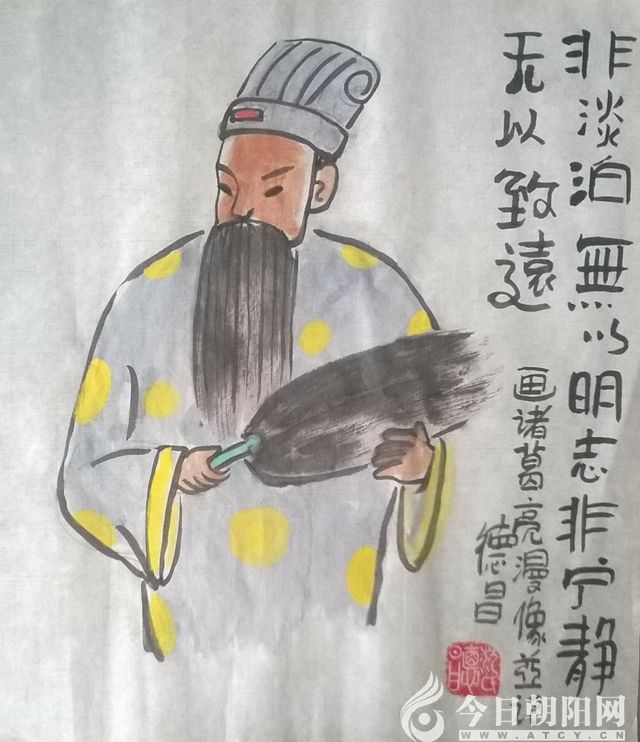 非淡泊無以明志非宁静
无以致遠
画诸葛亮漫像並
德昌
今日朝阳网
WWW.ATCY.CN